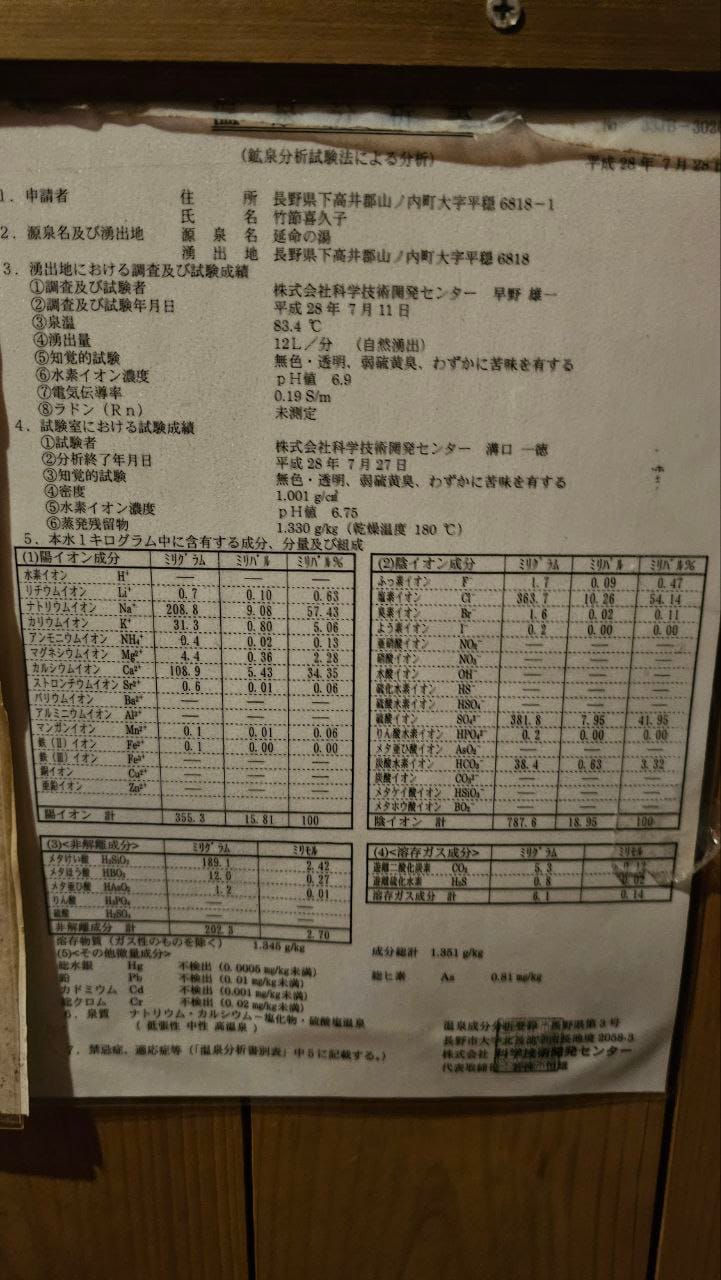 温泉分析書
(鉱泉分析試験法による分析) 平成28年 7月28日
1. 申請者 住 所 長野県下高井郡山ノ内町大字平穏6818-1
氏 名 竹節喜久子
2. 源泉名及び湧出地 源 泉 名 延命の湯
湧 出 地 長野県下高井郡山ノ内町大字平穏6818
3. 湧出地における調査及び試験成績
①調査及び試験者 株式会社科学技術開発センター 早野 雄一
②調査及び試験年月日 平成28年 7月11日
③泉温 83.4 ℃
④湧出量 12L/分 (自然湧出)
⑤知覚的試験 無色・透明、弱硫黄臭、わずかに苦味を有する
⑥水素イオン濃度 pH値 6.9
⑦電気伝導率 0.19 S/m
⑧ラドン(Rn) 未測定
4. 試験室における試験成績
①試験者 株式会社科学技術開発センター 溝口 一徳
②分析終了年月日 平成28年 7月27日
③知覚的試験 無色・透明、弱硫黄臭、わずかに苦味を有する
④密度 1.001 g/c㎥
⑤水素イオン濃度 pH値 6.75
⑥蒸発残留物 1.330 g/kg (乾燥温度 180 ℃)
5. 本水1キログラム中に含有する成分、分量及び組成
(1)陽イオン成分 ミリグラム ミリバル ミリバル%
水素イオン H⁺ — — —
リチウムイオン Li⁺ 0.7 0.10 0.63
ナトリウムイオン Na⁺ 208.8 9.08 57.43
カリウムイオン K⁺ 31.3 0.80 5.06
アンモニウムイオン NH₄⁺ 0.4 0.02 0.13
マグネシウムイオン Mg²⁺ 4.4 0.36 2.28
カルシウムイオン Ca²⁺ 108.9 5.43 34.35
ストロンチウムイオン Sr²⁺ 0.6 0.01 0.06
バリウムイオン Ba²⁺ — — —
アルミニウムイオン Al³⁺ — — —
マンガンイオン Mn²⁺ 0.1 0.01 0.06
鉄(Ⅱ)イオン Fe²⁺ 0.1 0.00 0.00
鉄(Ⅲ)イオン Fe³⁺ — — —
銅イオン Cu²⁺ — — —
亜鉛イオン Zn²⁺ — — —
陽イオン 計 355.3 15.81 100
(2)陰イオン成分 ミリグラム ミリバル ミリバル%
ふっ素イオン F⁻ 1.7 0.09 0.47
塩素イオン Cl⁻ 363.7 10.26 54.14
臭素イオン Br⁻ 1.6 0.02 0.11
よう素イオン I⁻ 0.2 0.00 0.00
亜硝酸イオン NO₂⁻ — — —
硝酸イオン NO₃⁻ — — —
水酸イオン OH⁻ — — —
硫化水素イオン HS⁻ — — —
硫酸水素イオン HSO₄⁻ — — —
硫酸イオン SO₄²⁻ 381.8 7.95 41.95
りん酸水素イオン HPO₄²⁻ 0.2 0.00 0.00
メタ亜ひ酸イオン AsO₂⁻ — — —
炭酸水素イオン HCO₃⁻ 38.4 0.63 3.32
炭酸イオン CO₃²⁻ — — —
メタケイ酸イオン HSiO₃⁻ — — —
メタホウ酸イオン BO₂⁻ — — —
陰イオン 計 787.6 18.95 100
(3)<非解離成分> ミリグラム ミリモル
メタけい酸 H₂SiO₃ 189.1 2.42
メタほう酸 HBO₂ 12.0 0.27
メタ亜ひ酸 HAsO₂ 1.2 0.01
りん酸 H₃PO₄ — —
硫酸 H₂SO₄ — —
非解離成分 計 202.3 2.70
(4)<溶存ガス成分> ミリグラム ミリモル
遊離二酸化炭素 CO₂ 5.3 0.12
遊離硫化水素 H₂S 0.8 0.02
溶存ガス成分 計 6.1 0.14
溶存物質(ガス性のものを除く) 1.345 g/kg 成分総計 1.351 g/kg
(5)<その他微量成分>
総水銀 Hg 不検出 (0.0005 mg/kg未満) 総ヒ素 As 0.81 mg/kg
鉛 Pb 不検出 (0.01 mg/kg未満)
カドミウム Cd 不検出 (0.001 mg/kg未満)
総クロム Cr 不検出 (0.02 mg/kg未満)
6. 泉質 ナトリウム・カルシウム－塩化物・硫酸塩温泉
(低張性 中性 高温泉)
7. 禁忌症、適応症等(「温泉分析書別表」中5に記載する。)
温泉成分分析登録 長野県第3号
長野市大字北長池字南長池境2058-3
株式会社 科学技術開発センター
代表取締役